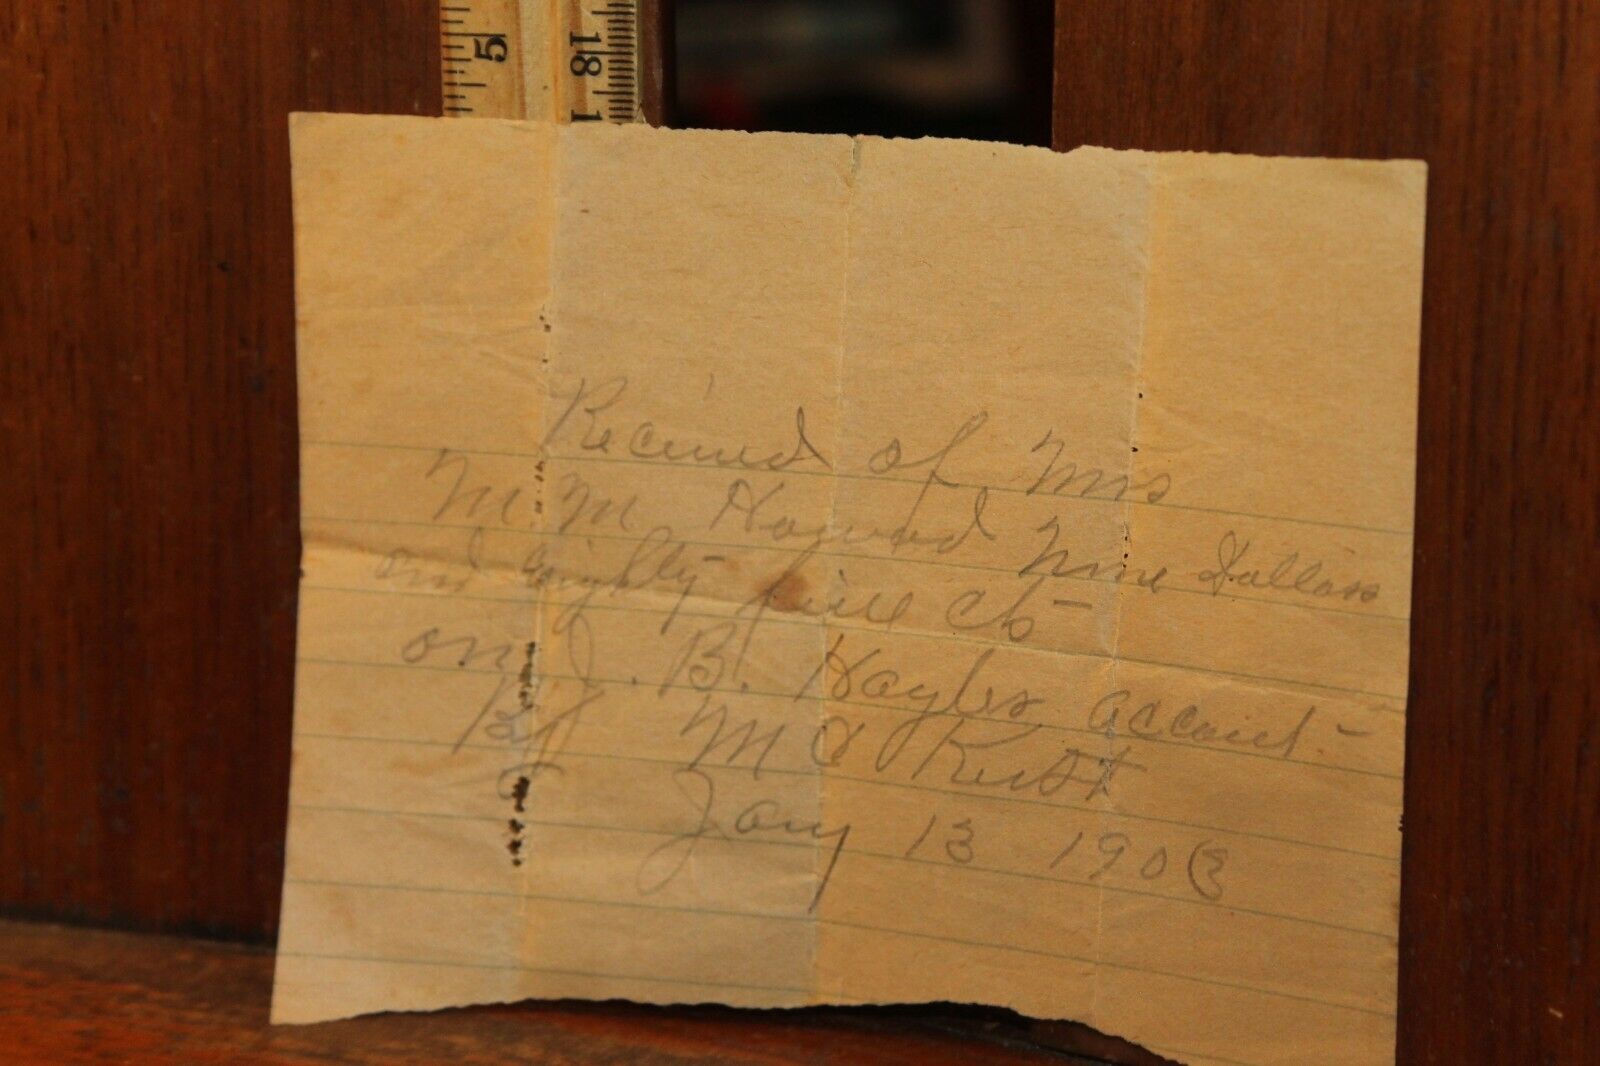 5 18
1
Rec'ived of Mrs
M. M Howard Nine Dollars
and eighty five cts —
on J. B. Hayles account —
By M C
Jany 13 1903